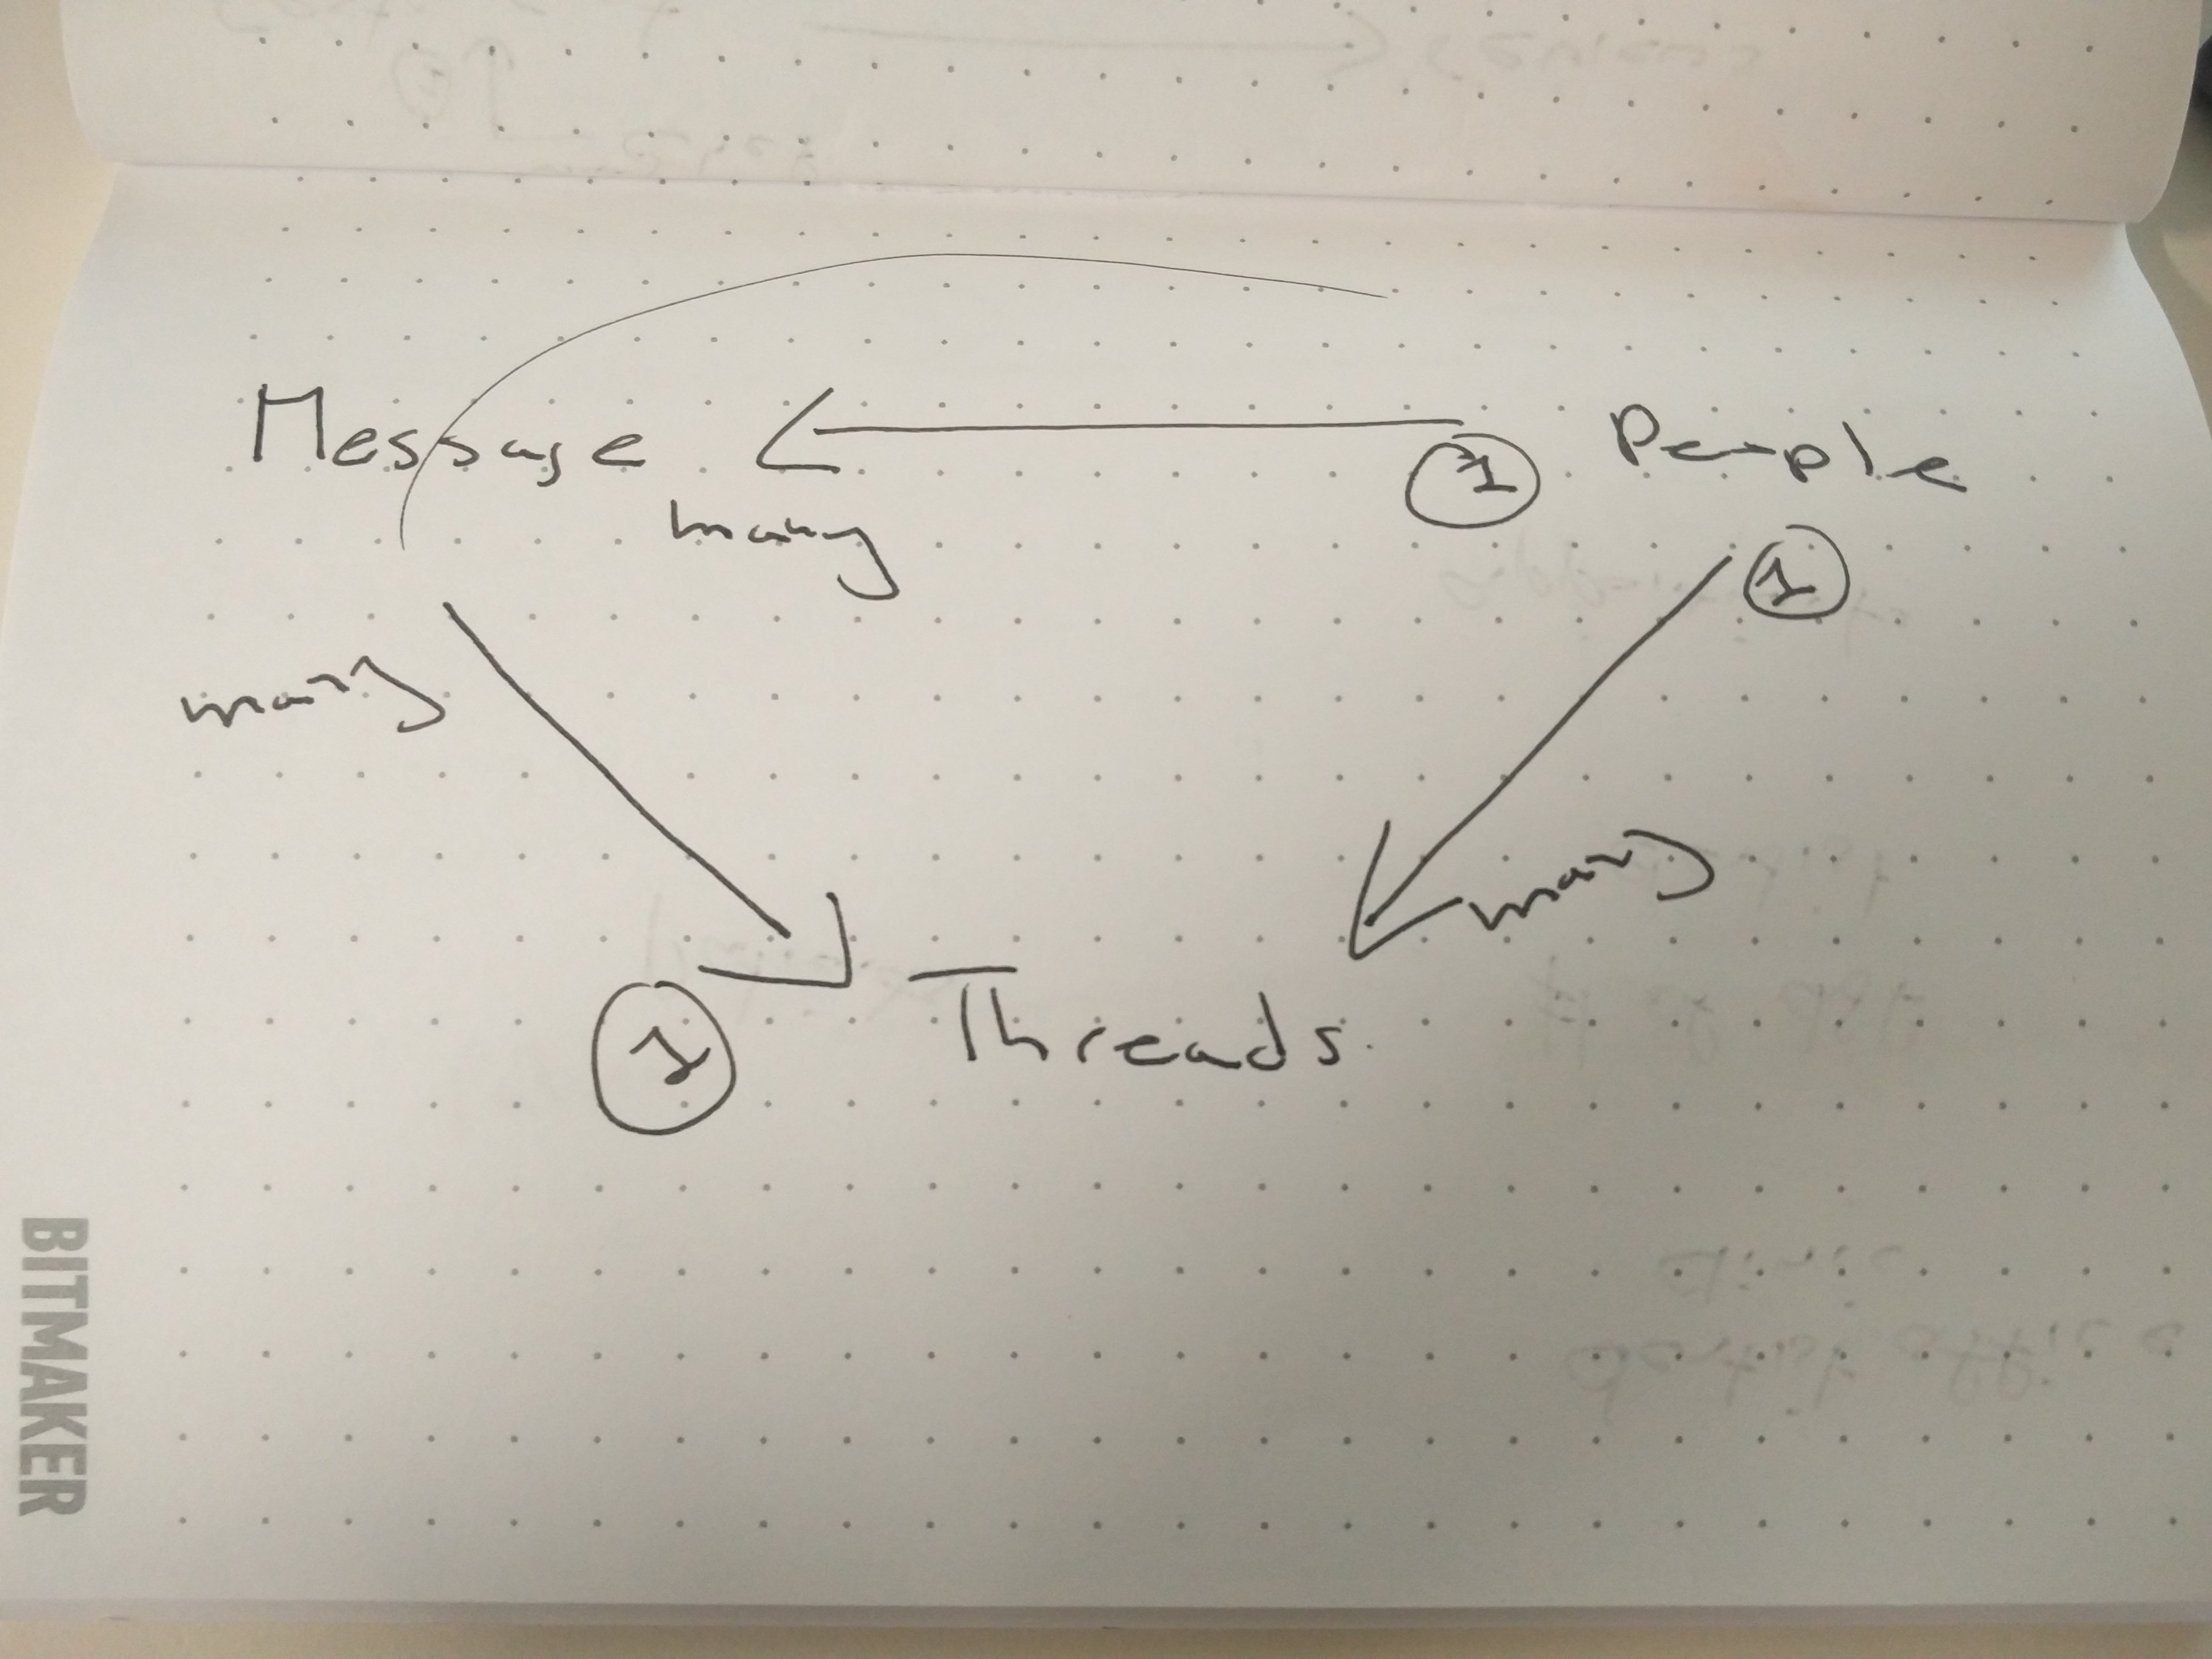 Message
1
People
many
1
many
many
1
Threads
BITMAKER